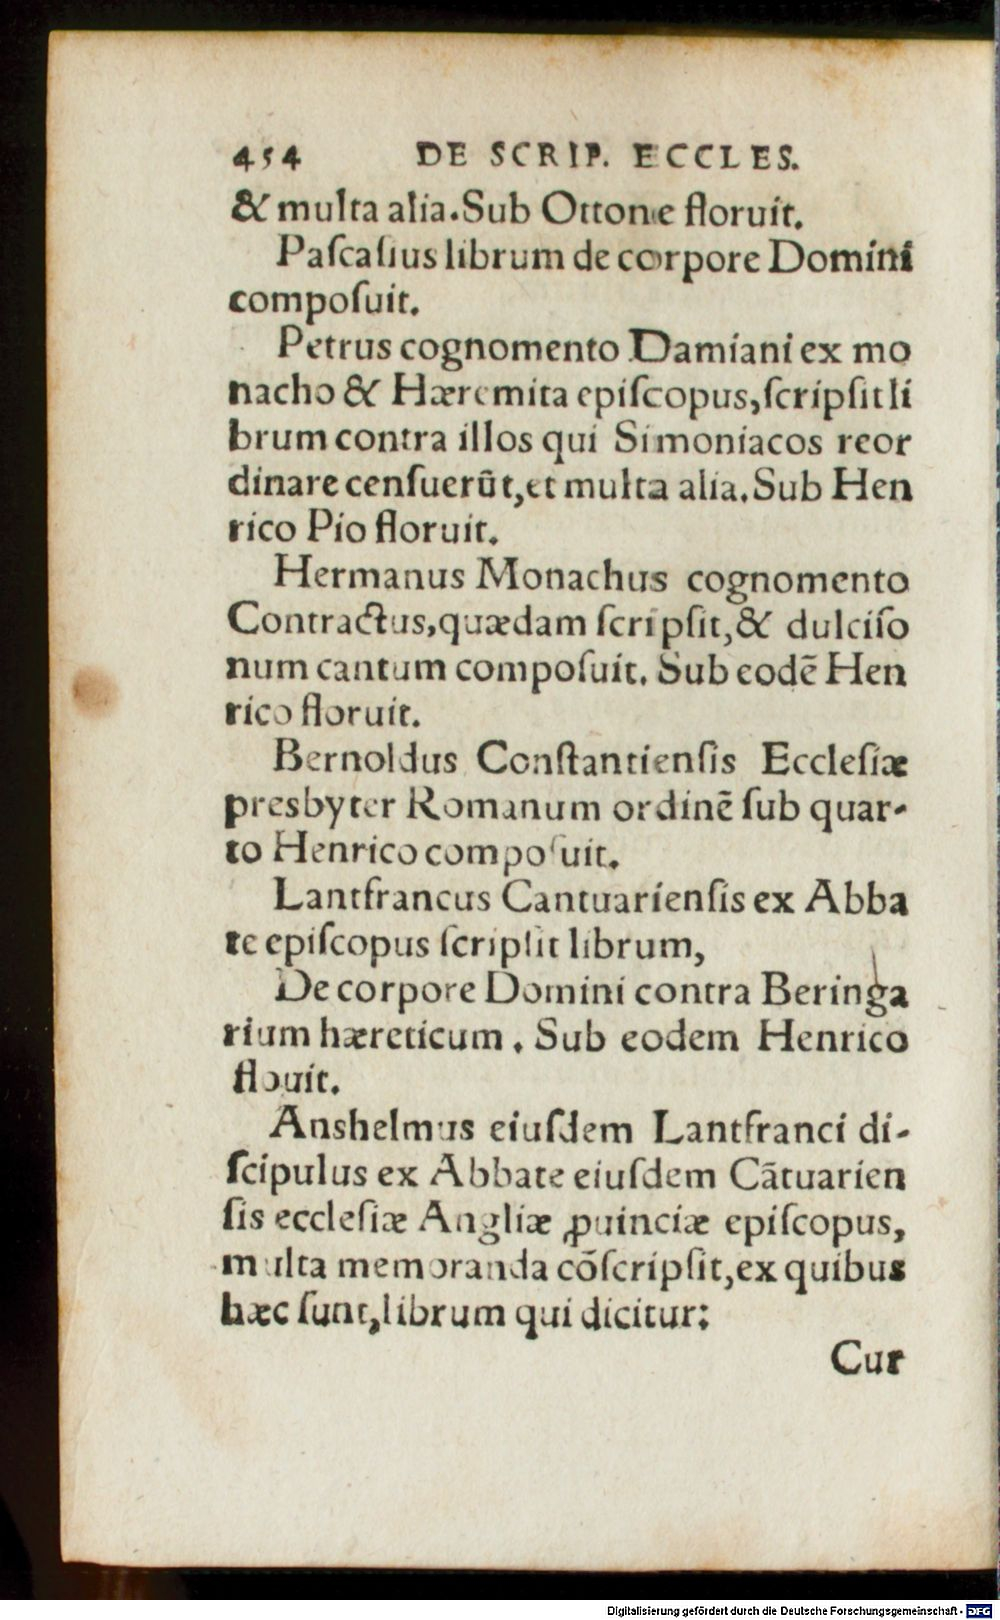 454 DE SCRIP. ECCLES.
& multa alia. Sub Ottone floruit.
Paſcaſius librum de corpore Domini
compoſuit.
Petrus cognomento Damiani ex mo
nacho & Hæremita epiſcopus, ſcripſit li
brum contra illos qui Simoniacos reor
dinare cenſuerūt, et multa alia. Sub Hen
rico Pio floruit.
Hermanus Monachus cognomento
Contractus, quædam ſcripſit, & dulciſo
num cantum compoſuit. Sub eodē Hen
rico floruit.
Bernoldus Conſtantienſis Eccleſiæ
presbyter Romanum ordinē ſub quar-
to Henrico compoſuit.
Lantfrancus Cantuarienſis ex Abba
te epiſcopus ſcripſit librum,
De corpore Domini contra Beringa
rium hæreticum. Sub eodem Henrico
flouit.
Anshelmus eiuſdem Lantfranci di-
ſcipulus ex Abbate eiuſdem Cātuarien
ſis eccleſiæ Angliæ ꝓuinciæ epiſcopus,
multa memoranda cōſcripſit, ex quibus
hæc ſunt, librum qui dicitur:
Cur
Digitalisierung gefördert durch die Deutsche Forschungsgemeinschaft - DFG